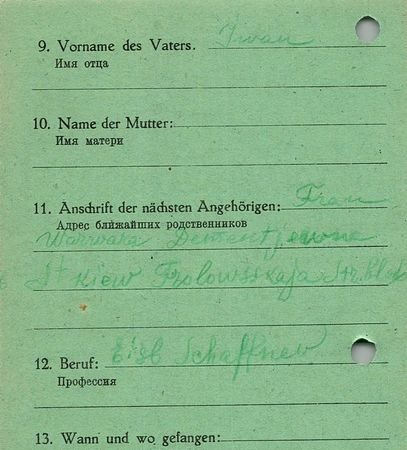 9. Vorname des Vaters. Iwan
Имя отца
10. Name der Mutter:
Имя матери
11. Anschrift der nächsten Angehörigen: Frau
Адрес ближайших родственников
Warwara Dementjewna
St Kiew Frolowsskaja Str.
12. Beruf: Eisb Schaffner
Профессия
13. Wann und wo gefangen: